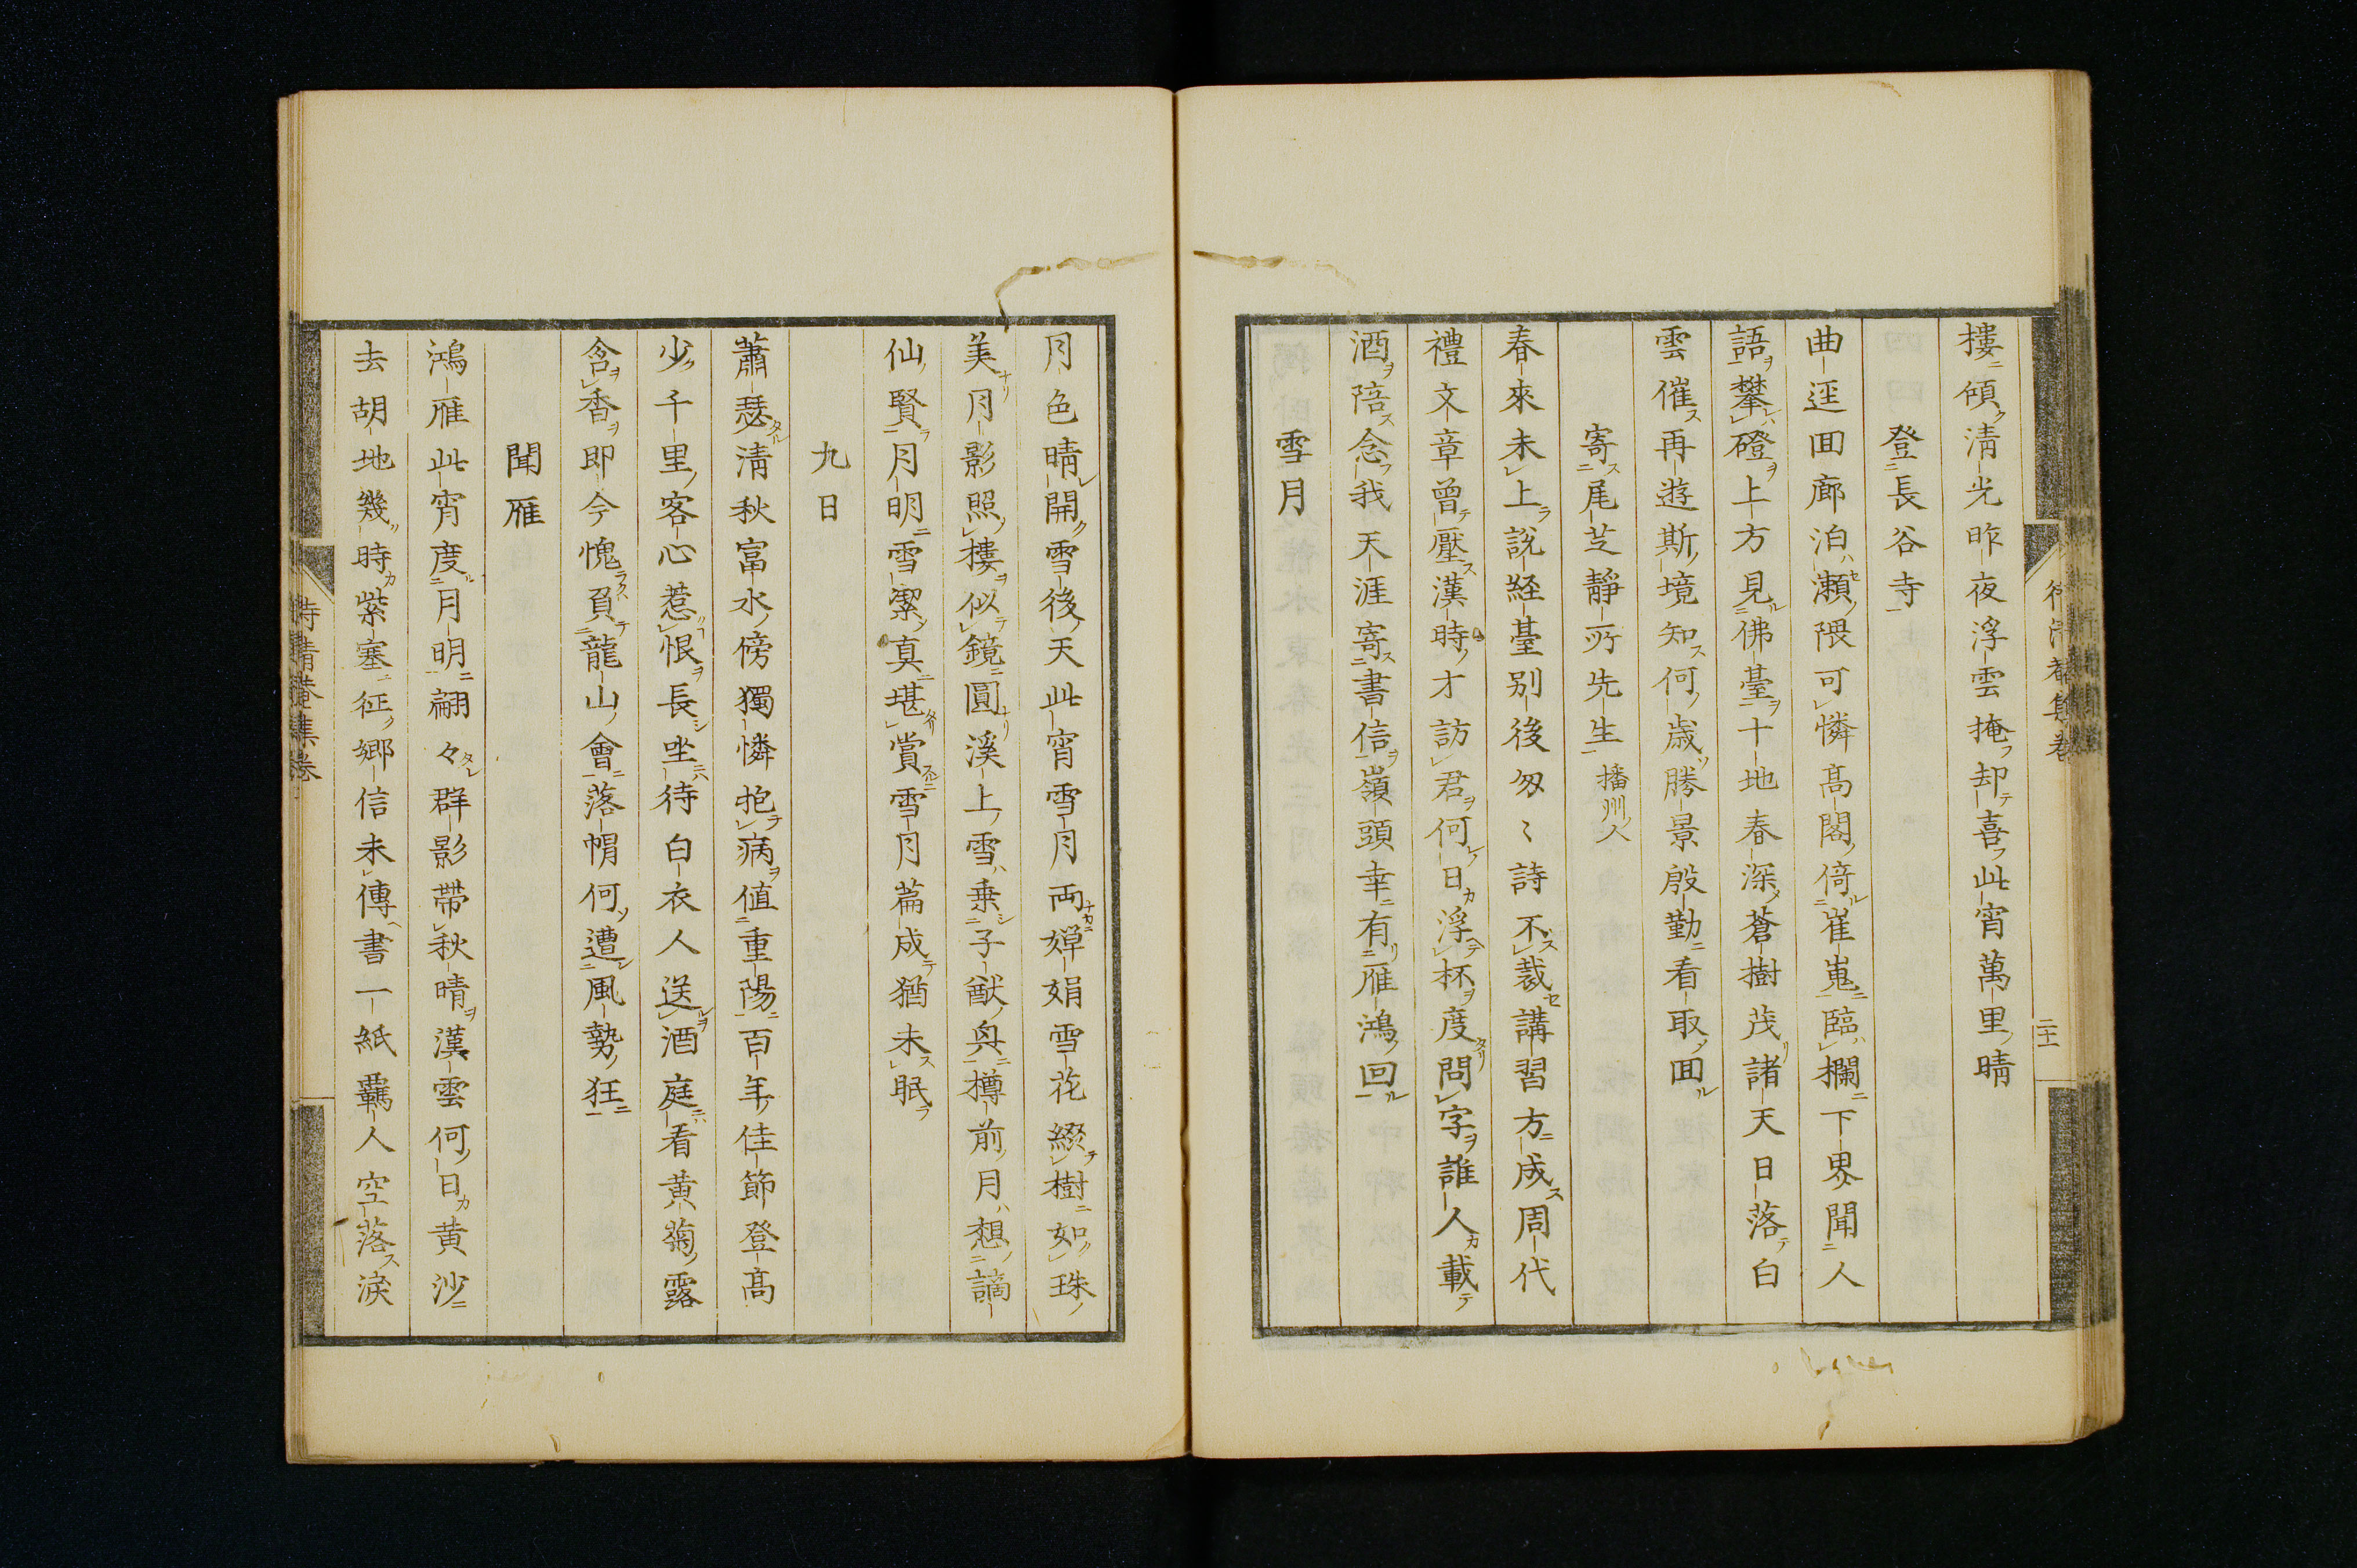 樓傾清光昨夜浮雲掩却喜此宵萬里晴
登長谷寺
曲逕囬廊泊瀬隈可憐高閣倚崔嵬臨欄下界聞人
語攀磴上方見佛臺十地春深蒼樹茂諸天日落白
雲催再遊斯境知何歳勝景殷勤看取囬
寄尾芝靜所先生 播州人
春來未上説経臺别後匆〻詩不裁講習方成周代
禮文章曾壓漢時才訪君何日浮杯度問字誰人載
酒陪念我天涯寄書信嶺頭幸有雁鴻回
雪月
二十一
月色晴開雪後天此宵雪月両嬋娟雪花綴樹如珠
美月影照樓似鏡圓溪上雪乗子猷舟樽前月想謫
仙賢月明雪潔真堪賞雪月篇成猶未眠
九日
蕭瑟清秋富水傍獨憐抱病値重陽百年佳節登高
少千里客心惹恨長坐待白衣人送酒庭看黄菊露
含香即今愧負龍山會落帽何遭風勢狂
聞雁
鴻雁此宵度月明翩々群影帯秋晴漢雲何日黄沙
去胡地幾時紫塞征郷信未傳書一紙羈人空落涙